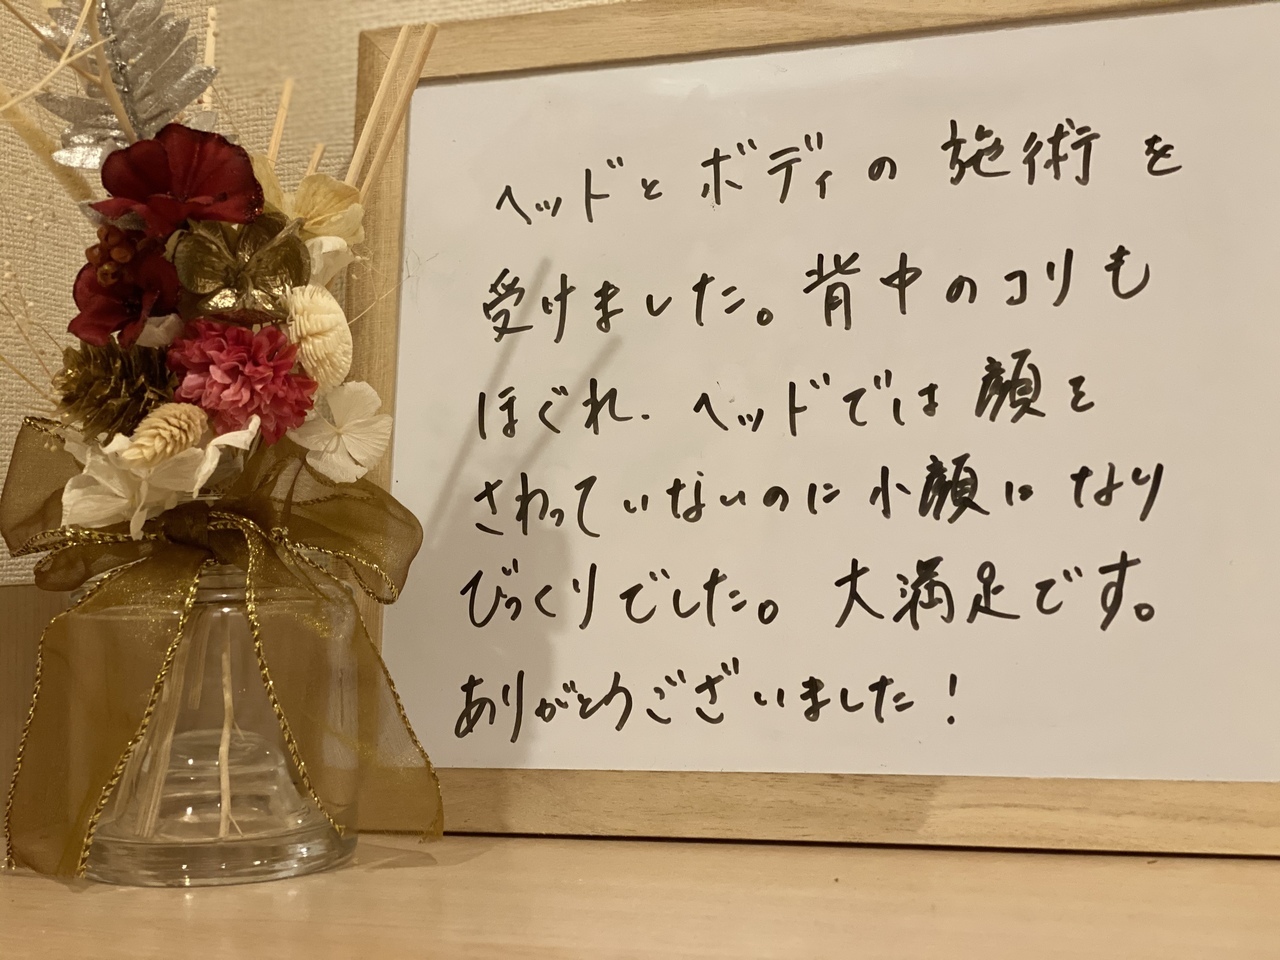 ヘッドとボディの施術を
受けました。背中のコリも
ほぐれ、ヘッドでは顔を
さわっていないのに小顔になり
びっくりでした。大満足です。
ありがとうございました！